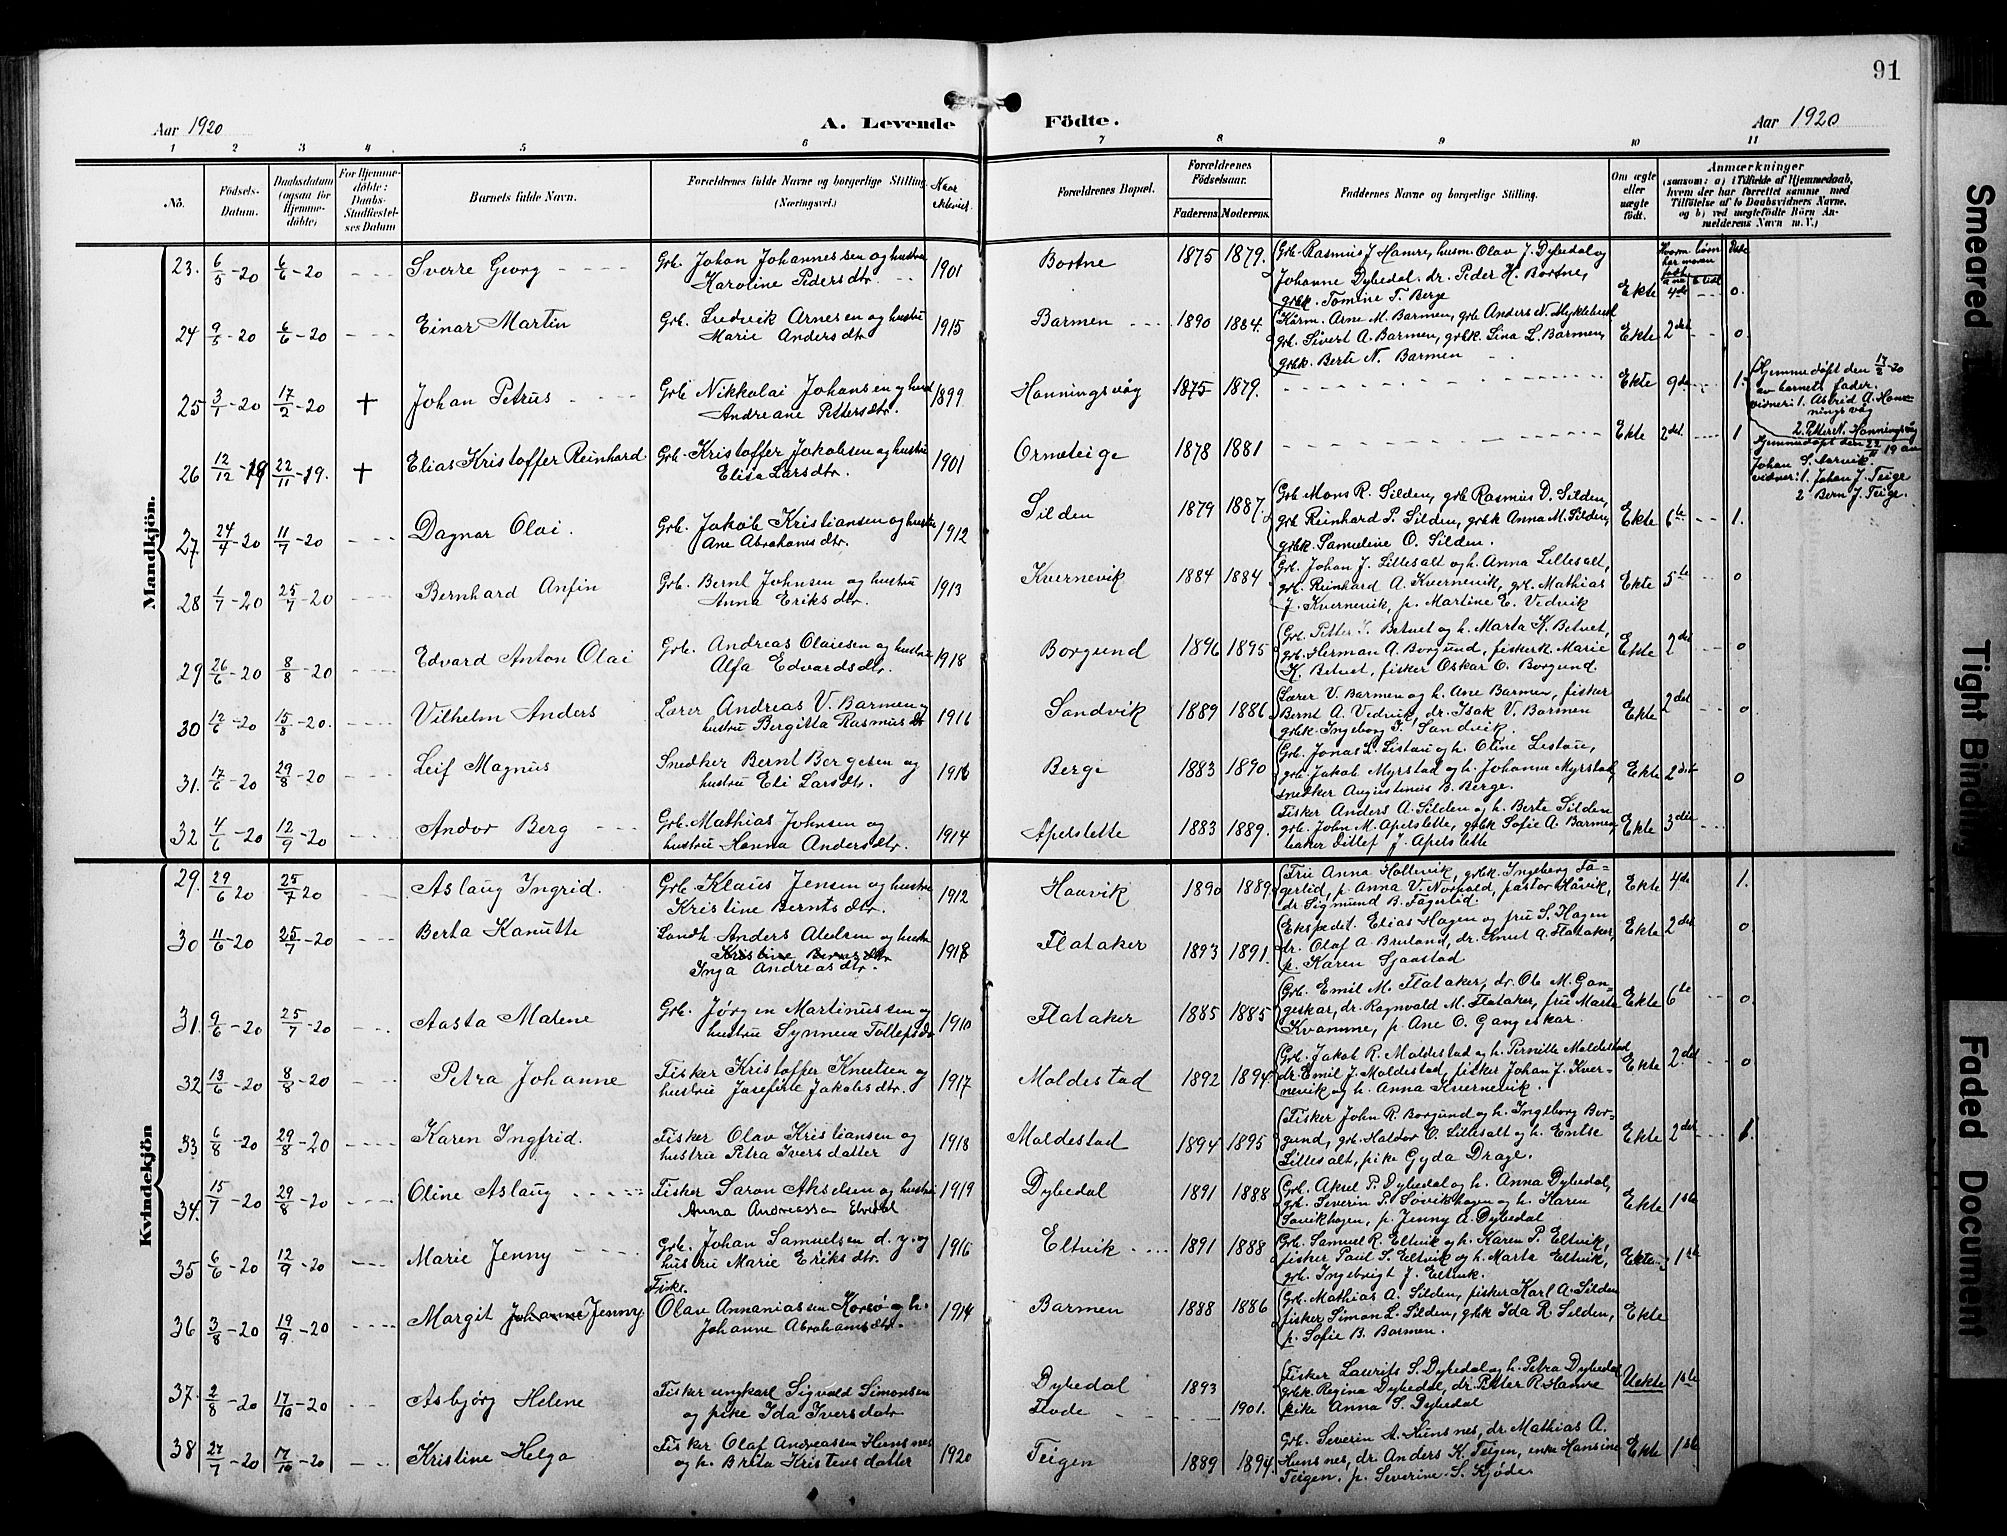 91
Aar 1920
A. Levende Födte.
Aar 1920
1 2 3 4 5 6 7 8 9 10 11
No.
Födsels-Datum.
Daabsdatum (ogsaa for Hjemme-döbte)
For Hjemme-döbte: Daabs-Stadfæstel-ses Datum
Barnets fulde Navn.
Forældrenes fulde Navne og borgerlige Stilling. (Næringsvei.)
Naar
Forældrenes Bopæl.
Forældrenes Födselsaar.
Faderens. Moderens.
Faddernes Navne og borgerlige Stilling.
Om ægte eller uægte födt.
Anmærkninger
(saasom: a) i Tilfælde af Hjemmedaab, hvem der har forrettet samme med Tilföielse af to Daabsvidners Navne, og b) ved uægtefödte Börn An-melderens Navn m. V.)
Mandkjön.
23. 6/5-20 6/6-20 Sverre Georg Grb. Johan Johannessen og hustru 1901 Bortne 1875 1879. Grb. Rasmus J. Hamre, husm. Olav J. Dybedal og
Karoline Pedersdtr. Johanne Dybedal, dr. Peder H. Bortne,
grbk. Tomine T. Berge Ekte 4de 0.
24 9/5-20 6/6-20 Einar Martin Grb. Ludvik Arnesen og hustru 1915 Barmen 1890 1884. Kårm. Arne M. Barmen, grb Anders N. Myklebust
Marie Andersdtr. grb. Sivert A. Barmen, grbk. Lina L. Barmen, Ekte 2det 0
grbk. Berte N. Barmen
25 3/1-20 17/2-20 + Johan Petrus Grb Nikkolai Johansen og hust 1899 Honningsvåg 1875 1879. Ekte 9de 1.
Andreane Pettersdtr.
Hjemmedöpt den 17/2-20
av barnets fader.
vidner: 1. Astrid A. Hon-
ningsvåg
2. Petter N. Honningsvåg
26 12/12-19 22/11-19. + Elias Kristoffer Reinhard Grb. Kristoffer Jakobsen og hustru 1901 Ormeteige 1878 1881 Ekte 2det. 1
Elisa Larsdtr.
Hjemmedöpt den 22/11 19 av
Johan S. Aarvik.
vidner: 1. Johan J. Teige
2 Bern J. Teige.
27 24/4-20 11/7-20 Dagnar Olai. Grb. Jakob Kristiansen og hustru 1912 Silden 1879 1887. Grb Mons R. Silden, grb Rasmus D. Silden,
Ane Abrahamsdtr. grb Reinhard P. Silden, grbk Anna M. Silden, Ekte 6te 1.
grbk. Samuline O. Silden.
28 1/7-20 25/7-20 Bernhard Anfin Grb. Bernt Johnsen og hustru 1913 Kvernevik 1884 1884 Grb. Johan J. Lillesalt og h. Anna Lillesalt,
Anna Eriksdtr. grb. Reinhard A. Kvernevik, grb. Mathias Ekte 5te 0
J. Kvernevik, p. Martine E. Vedvik
29 26/6-20 8/8-20 Edvard Anton Olai Grb. Andreas Olaiesen og hustru 1918 Borgund 1896 1895 Grb. Petter J. Betvet og h. Marta K. Betvet,
Alfa Edvardsdtr. grb. Herman A. Borgund, fiskerk. Marie Ekte 2det 0
K. Betvet, fisker Oskar O. Borgund.
30 12/6-20 15/8-20. Vilhelm Anders Lærer Andreas V. Barmen og 1916 Sandvik 1889 1886 Lærer V. Barmen og h. Ane Barmen, fisker
hustru Bergitta Rasmusdtr Bernt A. Vedvik, dr. Isak V. Barmen Ekte 2det 0
grbk. Ingeborg J. Sandvik.
31. 17/6-20 29/8-20 Leif Magnus Snedker Bernt Bergesen og 1916 Berge 1883 1890 Grb. Jonas L. Listau og h. Oline Listau,
hustru Eli Larsdtr. grb. Jakob Myrstad og h. Johanne Myrstad, Ekte 2det 0
snedker Augustinus B. Berge.
32 4/6-20 12/9-20 Andor Berg Grb. Mathias Johnsen og 1914 Apelslette 1883 1889. Fisker Anders A. Silden og h. Berte Silden
hustru Hanna Andersdtr. grb. John M. Apelslette, grbk Sofie A. Barmen, Ekte 3die
baker Ditlef J. Apelslette
Kvindekjön
29. 29/6 20 25/7 20 Aslaug Ingrid. Grb. Klaus Jensen og hustru 1912 Haavik 1890 1889. Fru Anna Holtevik, grbk. Ingeborg Få-
Kristine Berntsdtr. gerlid, p. Anna V. Norpold, pastor Håvik, Ekte 4de 1.
dr Sigmund B. Fagerlid.
30 11/6-20 25/7-20 Berta Kanutte Landh. Anders Aledsen og hustru 1918 Flataker 1893 1891. Ekspedit. Elias Hagen og fru S. Hagen
Kristine Berntsdtr
Inga Andreasdtr. dr. Olaf A. Bruland, dr. Knut A. Flataker, Ekte 2det 0.
p. Karen Sjaastad
31. 9/6-20 25/7-20 Aasta Malene Grb. Jørgen Martinussen og 1910 Flataker 1885 1885 Grb. Emil M. Flataker, dr. Ole M. Gan-
hustru Synneva Tollefsdtr geskar, dr. Ragnvald M. Flataker, fru Marta Ekte 6te 0.
Kvamme, p. Ane O. Gangeskar.
32 13/6-20 8/8-20 Petra Johanne Fisker Kristoffer Knutsen og 1917 Moldestad 1892 1894. Grb. Jakob R. Moldestad og h. Pernille Moldestad
hustru Josefine Jakobsdtr. dr. Emil J. Moldestad, fisker Johan J. Kver- Ekte 2det 0
nevik og h. Anna Kvernevik.
33 6/8-20 29/8-20 Karen Ingfrid. Fisker Olav Kristiansen og 1918 Moldestad 1894 1895 Fisker John R. Borgund og h. Ingeborg Bor-
hustru Petra Iversdatter gund, grb. Haldor O. Lillesalt og h. Entse Ekte 2det 1.
Lillesalt, pike Gyda Drage.
34. 15/7-20 29/8-20 Oline Aslaug Fisker Saron Akselsen og hustru 1919 Dybedal 1891 1888 Grb. Aksel P. Dybedal og h. Anna Dybedal,
Anna Andreassen grb. Severin P. Sørvikhagen og h. Karen Ekte 1ste
Sørvikhagen, p. Jenny A. Dybedal
35 6/6-20 12/9-20 Marie Jenny Grb. Johan Samuelsen d. y. og 1916 Eltvik 1891 1888 Grb. Samuel R. Eltvik og h. Karen P. Eltvik,
hustru Marie Eriksdtr. fisker Paul S. Eltvik og h. Marta Eltvik, Ekte 1ste
grb. Ingebrigt J. Eltvik.
36 3/8-20 19/9-20 Margit Johanne Jenny Fisk. Olav Annaniassen Korsø og h. 1914 Barmen 1888 1886 Grb. Mathias A. Silden, fisker Karl A. Silden
Johanne Abrahamsdtr. fisker Simon L. Silden, grbk Ida R. Silden, Ekte
p. Sofie B. Barmen.
37. 2/8-20 17/10-20 Asbjørg Helene Fisker ungkarl Sigvald Simonsen Dybedal 1893 Fisker Laurits S. Dybedal og h. Petra Dybedal
og pike Ida Iversdatr Flode 1901. grbk. Regina Dybedal, dr. Petter R. Hamre Uekte 1ste
pike Anna S. Dybedal
38 27/7-20 17/10-20 Kristine Helga Fisker Olaf Andreassen Hunsnes 1920 Teigen 1889 1894. Grb. Severin A. Hunsnes, dr. Mathias A.
og h. Brita Kristensdatter Hunsnes, dr. Anders K. Teigen, enke Hansine Ekte 1ste
Teigen, p. Severine S. Kjøde
Smeared
Tight Binding
Faded Document